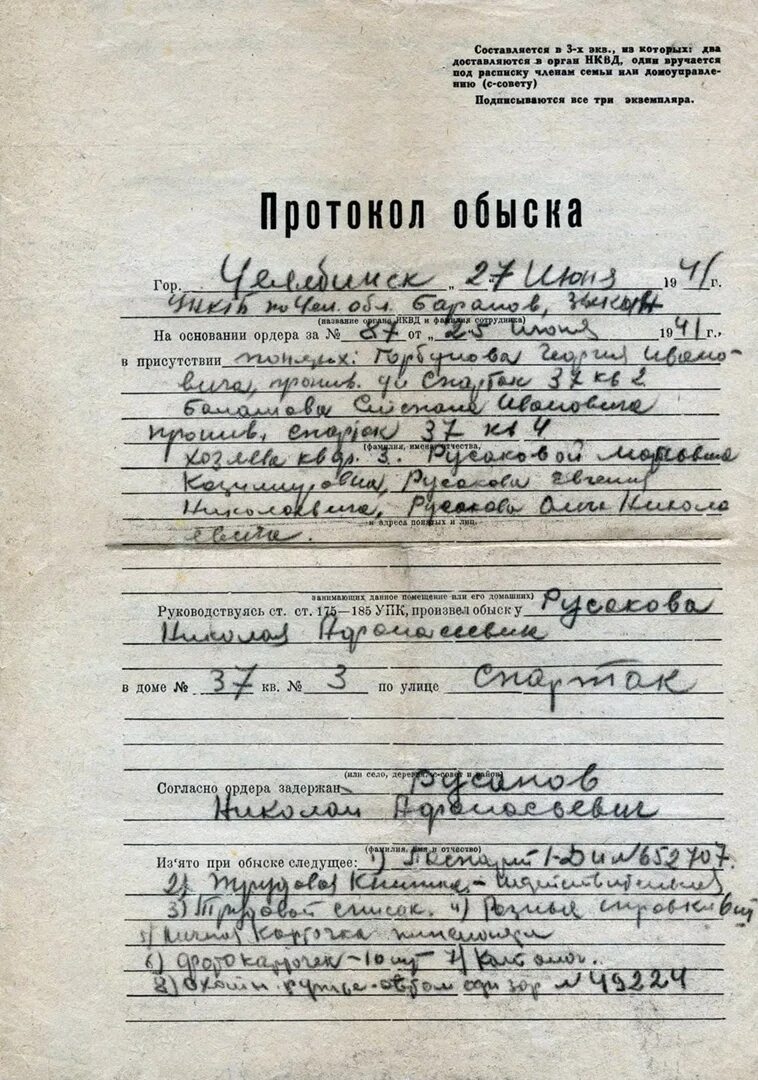 Составляется в 3-х экв., из которых: два
доставляются в орган НКВД, один вручается
под расписку членам семьи или домоуправле-
нию (с-совету)
Подписываются все три экземпляра.
Протокол обыска
Гор. Челябинск „27" Июня 1941г.
по Чел. обл. Баранов,
(название органа НКВД и фамилия сотрудника)
На основании ордера за № 87 от „25" Июня 1941г.,
в присутствии понятых: Горбунова Георгия Ивано-
вича, прожив. Спартак 37 кв 2
Балашова Степана Ивановича
прожив. спартак 37 кв 4
(фамилия, имена отчества,
хозяева квар. 3. Русаковой
Казимировна, Русакова Евгения
Николаевича, Русакова Николо
и адреса понятых и лиц,
евича.
занимающих данное помещение или его домашних)
Руководствуясь ст. ст. 175—185 УПК, произвел обыск у Русакова
Николая Афонасьевич
в доме № 37 кв. № 3 по улице Спартак
(или село, деревня, с-совет и район)
Согласно ордера задержан Русаков
Николай Афонасьевич
(фамилия, имя и отчество)
Из'ято при обыске следующее: 1) Паспорт I-ДИ №652707.
2) Трудовая Книжка -
3) Трудовой список. 4) Разные справки 6 шт
5) Личная Карточка
6) фотокарточек - 10 шт 7)
8) Охотн. ружье № 49224